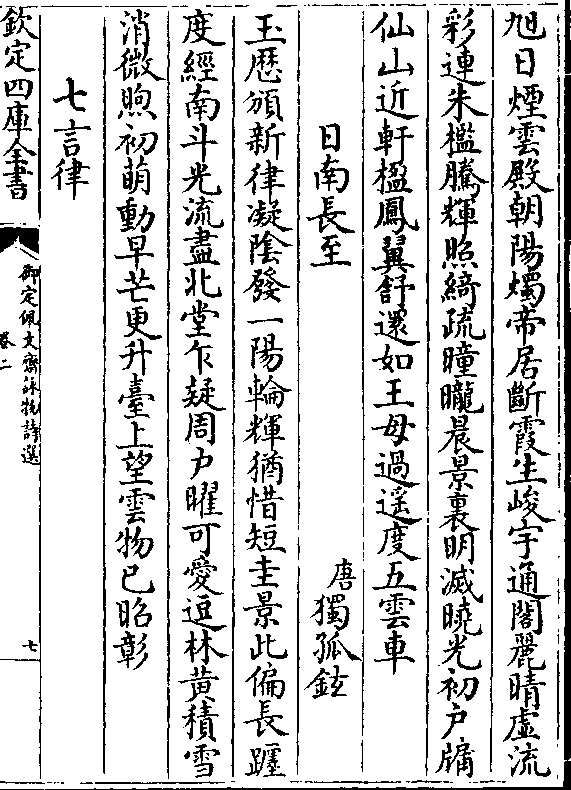 旭日煙雲殿朝陽燭帝居斷霞生峻宇通閣麗晴虛流
彩連朱檻騰輝照綺疏曈曨晨景裏明滅曉光初户牖
仙山近軒楹鳳翼舒還如王母過遥度五雲車
日南長至 唐獨孤鉉
玉厯頒新律凝陰發一陽輪輝猶惜短圭景此偏長躔
度經南斗光流盡北堂乍疑周户曜可愛逗林黄積雪
消微煦初萌動早芒更升臺上望雲物已昭彰
七言律
欽定四庫全書
御定佩文齋詠物詩選
卷二
七